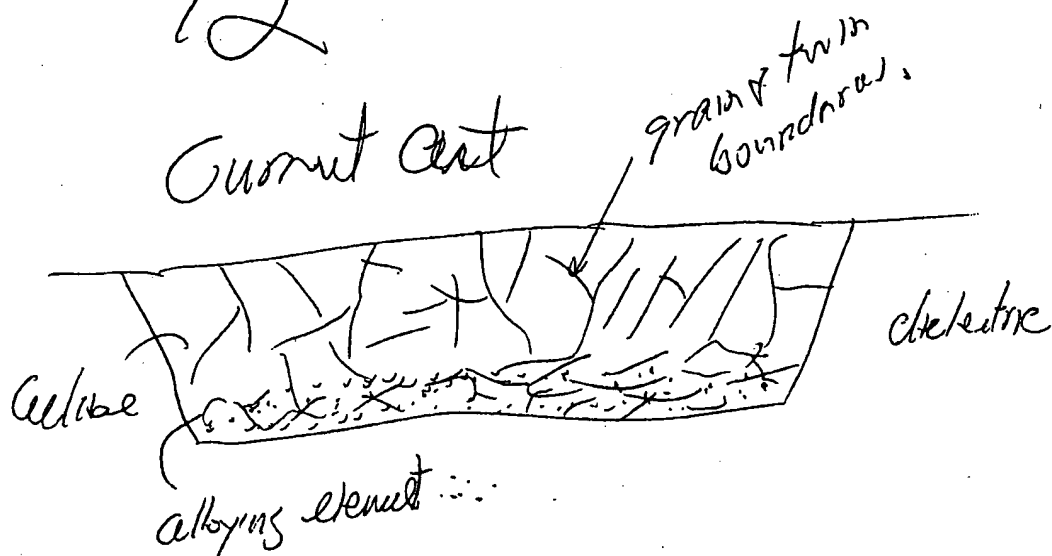 12
Current Art
grain & twin
boundaries.
dielectric
Cu line
alloying element